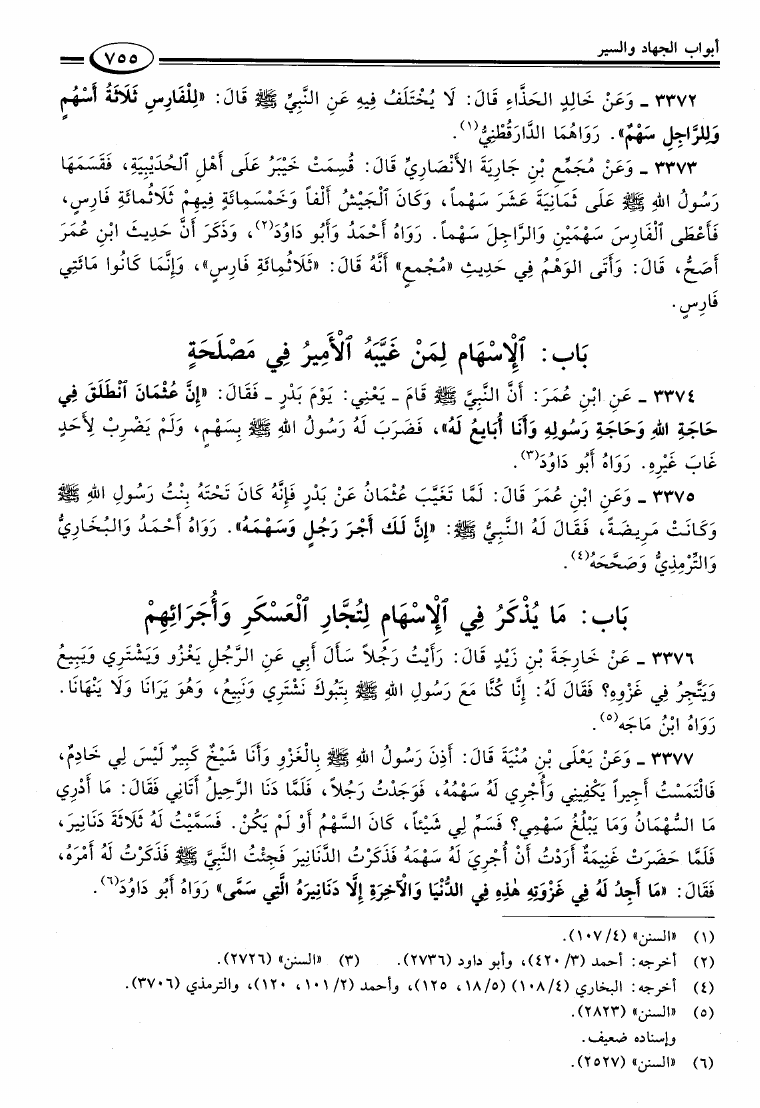 أبواب الجهاد والسير
٧٥٥
٣٣٧٢ ـ وَعَنْ خَالِدٍ الحَذَّاءِ قَالَ: لَا يُخْتَلَفُ فِيهِ عَنِ النَّبِيِّ ﷺ قَالَ: «لِلْفَارِسِ ثَلَاثَةُ أَسْهُمٍ
وَلِلرَّاجِلِ سَهْمٌ». رَوَاهُمَا الدَّارَقُطْنِيُّ(١).
٣٣٧٣ ـ وَعَنْ مُجَمِّعِ بْنِ جَارِيَةَ الأَنْصَارِيِّ قَالَ: قُسِمَتْ خَيْبَرُ عَلَى أَهْلِ ٱلحُدَيْبِيَةِ، فَقَسَمَهَا
رَسُولُ اللهِ ﷺ عَلَى ثَمَانِيَةَ عَشَرَ سَهْماً، وَكَانَ ٱلْجَيْشُ أَلْفاً وَخَمْسَمِائَةٍ فِيهِمْ ثَلَاثُمائَةِ فَارِسٍ،
فَأَعْطَى ٱلْفَارِسَ سَهْمَيْنِ وَالرَّاجِلَ سَهْماً. رَوَاهُ أَحْمَدُ وَأَبُو دَاوُدَ(٢)، وَذَكَرَ أَنَّ حَدِيثَ ابْنِ عُمَرَ
أَصَحُّ، قَالَ: وَأَتَى الوَهْمُ فِي حَدِيثِ «مُجْمعٍ» أَنَّهُ قَالَ: «ثَلَاثُمِائَةِ فَارِسٍ»، وَإِنَّمَا كَانُوا مَائَتَي
فَارِسٍ.
بَاب: ٱلْإِسْهَامِ لِمَنْ غَيَّبَهُ ٱلْأَمِيرُ فِي مَصْلَحَةٍ
٣٣٧٤ ـ عَنِ ابْنِ عُمَرَ: أَنَّ النَّبِيَّ ﷺ قَامَ ـ يَعْنِي: يَوْمَ بَدْرٍ ـ فَقَالَ: «إِنَّ عُثْمَانَ ٱنْطَلَقَ فِي
حَاجَةِ اللهِ وَحَاجَةِ رَسُولِهِ وَأَنَا أُبَايِعُ لَهُ»، فَضَرَبَ لَهُ رَسُولُ اللهِ ﷺ بِسَهْمٍ، وَلَمْ يَضْرِبْ لِأَحَدٍ
غَابَ غَيْرِهِ. رَوَاهُ أَبُو دَاوُدَ(٣).
٣٣٧٥ ـ وَعَنِ ابْنِ عُمَرَ قَالَ: لَمَّا تَغَيَّبَ عُثْمَانُ عَنْ بَدْرٍ فَإِنَّهُ كَانَ تَحْتَهُ بِنْتُ رَسُولِ اللهِ ﷺ
وَكَانَتْ مَرِيضَةً، فَقَالَ لَهُ النَّبِيُّ ﷺ: «إِنَّ لَكَ أَجْرَ رَجُلٍ وَسَهْمَهُ». رَوَاهُ أَحْمَدُ وَالبُخَارِيُّ
وَالتِّرْمِذِيُّ وَصَحَّحَهُ(٤).
بَاب: مَا يُذْكَرُ فِي ٱلْإِسْهَامِ لِتُجَّارِ ٱلْعَسْكَرِ وَأُجَرَائِهِمْ
٣٣٧٦ ـ عَنْ خَارِجَةَ بْنِ زَيْدٍ قَالَ: رَأَيْتُ رَجُلاً سَأَلَ أَبِي عَنِ الرَّجُلِ يَغْزُو وَيَشْتَرِي وَيَبِيعُ
وَيَتَّجِرُ فِي غَزْوِهِ؟ فَقَالَ لَهُ: إِنَّا كُنَّا مَعَ رَسُولِ اللهِ ﷺ بِتَبُوكَ نَشْتَرِي وَنَبِيعُ، وَهُوَ يَرَانَا وَلَا يَنْهَانَا.
رَوَاهُ ابْنُ مَاجَه(٥).
٣٣٧٧ ـ وَعَنْ يَعْلَى بْنِ مُنْيَةَ قَالَ: أَذِنَ رَسُولُ اللهِ ﷺ بِالْغَزْوِ وَأَنَا شَيْخٌ كَبِيرٌ لَيْسَ لِي خَادِمٌ،
فَالْتَمَسْتُ أَجِيراً يَكْفِينِي وَأُجْرِي لَهُ سَهْمُهُ، فَوَجَدْتُ رَجُلاً، فَلَمَّا دَنَا الرَّحِيلُ أَتَانِي فَقَالَ: مَا أَدْرِي
مَا السُّهْمَانُ وَمَا يَبْلُغُ سَهْمِي؟ فَسَمِّ لِي شَيْئاً، كَانَ السَّهْمُ أَوْ لَمْ يَكُنْ. فَسَمَّيْتُ لَهُ ثَلَاثَةَ دَنَانِيرَ،
فَلَمَّا حَضَرَتْ غَنِيمَةٌ أَرَدْتُ أَنْ أُجْرِيَ لَهُ سَهْمَهُ فَذَكَرْتُ الدَّنَانِيرَ فَجِئْتُ النَّبِيَّ ﷺ فَذَكَرْتُ لَهُ أَمْرَهُ،
فَقَالَ: «مَا أَجِدُ لَهُ فِي غَزْوَتِهِ هٰذِهِ فِي الدُّنْيَا وَالْآخِرَةِ إِلَّا دَنَانِيرَهُ الَّتِي سَمَّى» رَوَاهُ أَبُو دَاوُدَ(٦).
(١) «السنن» (٤/ ١٠٧).
(٢) أخرجه: أحمد (٣/ ٤٢٠)، وأبو داود (٢٧٣٦). (٣) «السنن» (٢٧٢٦).
(٤) أخرجه: البخاري (٤/ ١٠٨) (٥/ ١٨، ١٢٥)، وأحمد (٢/ ١٠١، ١٢٠)، والترمذي (٣٧٠٦).
(٥) «السنن» (٢٨٢٣).
وإسناده ضعيف.
(٦) «السنن» (٢٥٢٧).